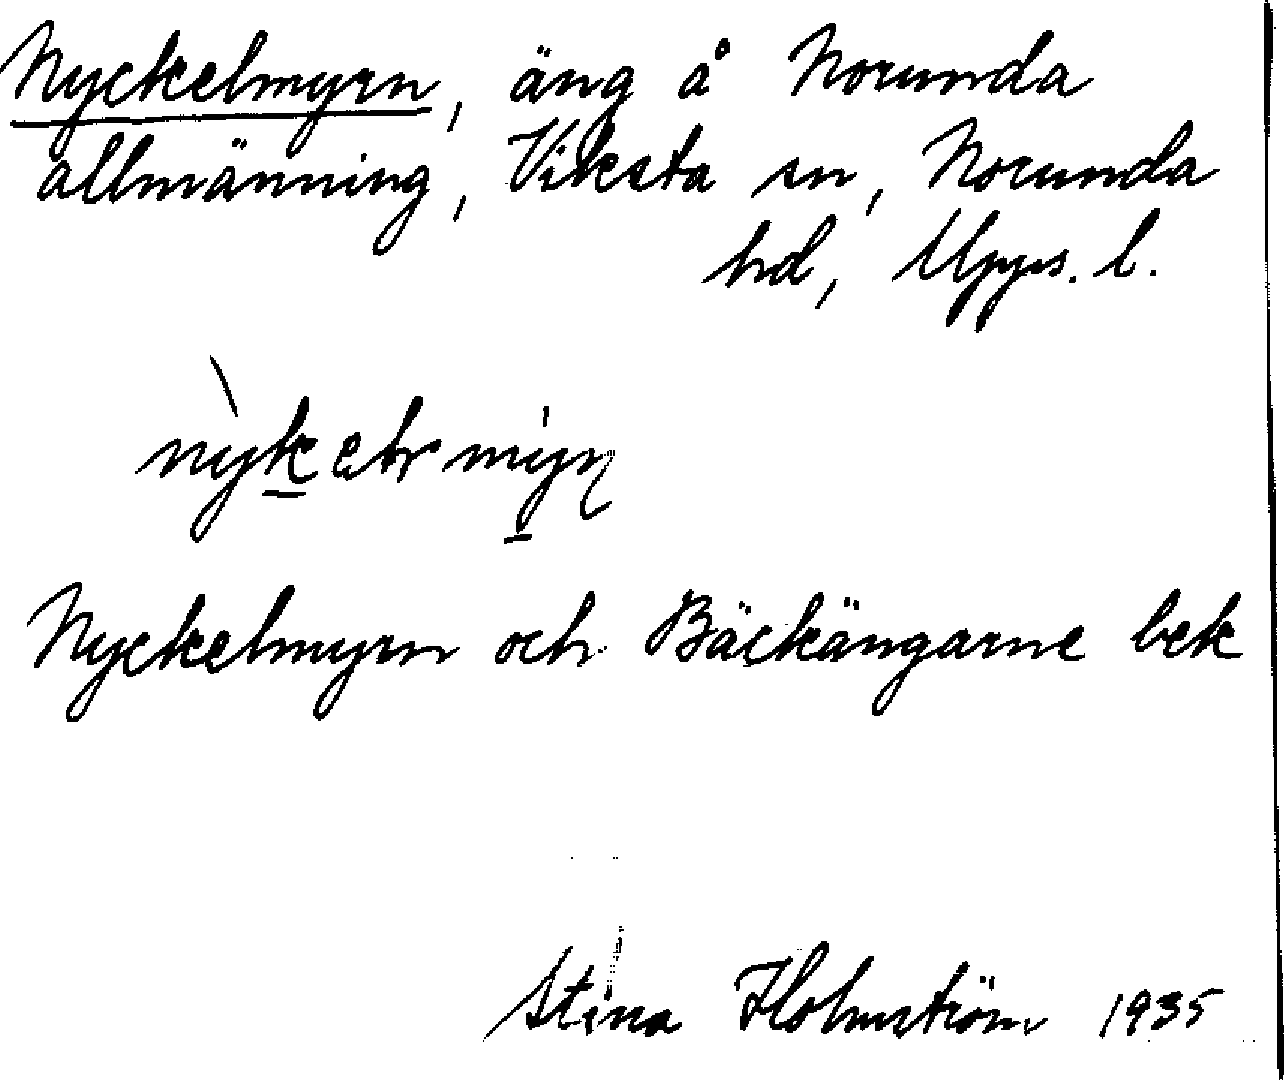 Nyckelmyrn, äng å Norunda
allmänning, Viksta sn, Norunda
hd, Upps. l.
Nyckelmyrn och Bäckängarne bek
Stina Holmström 1935